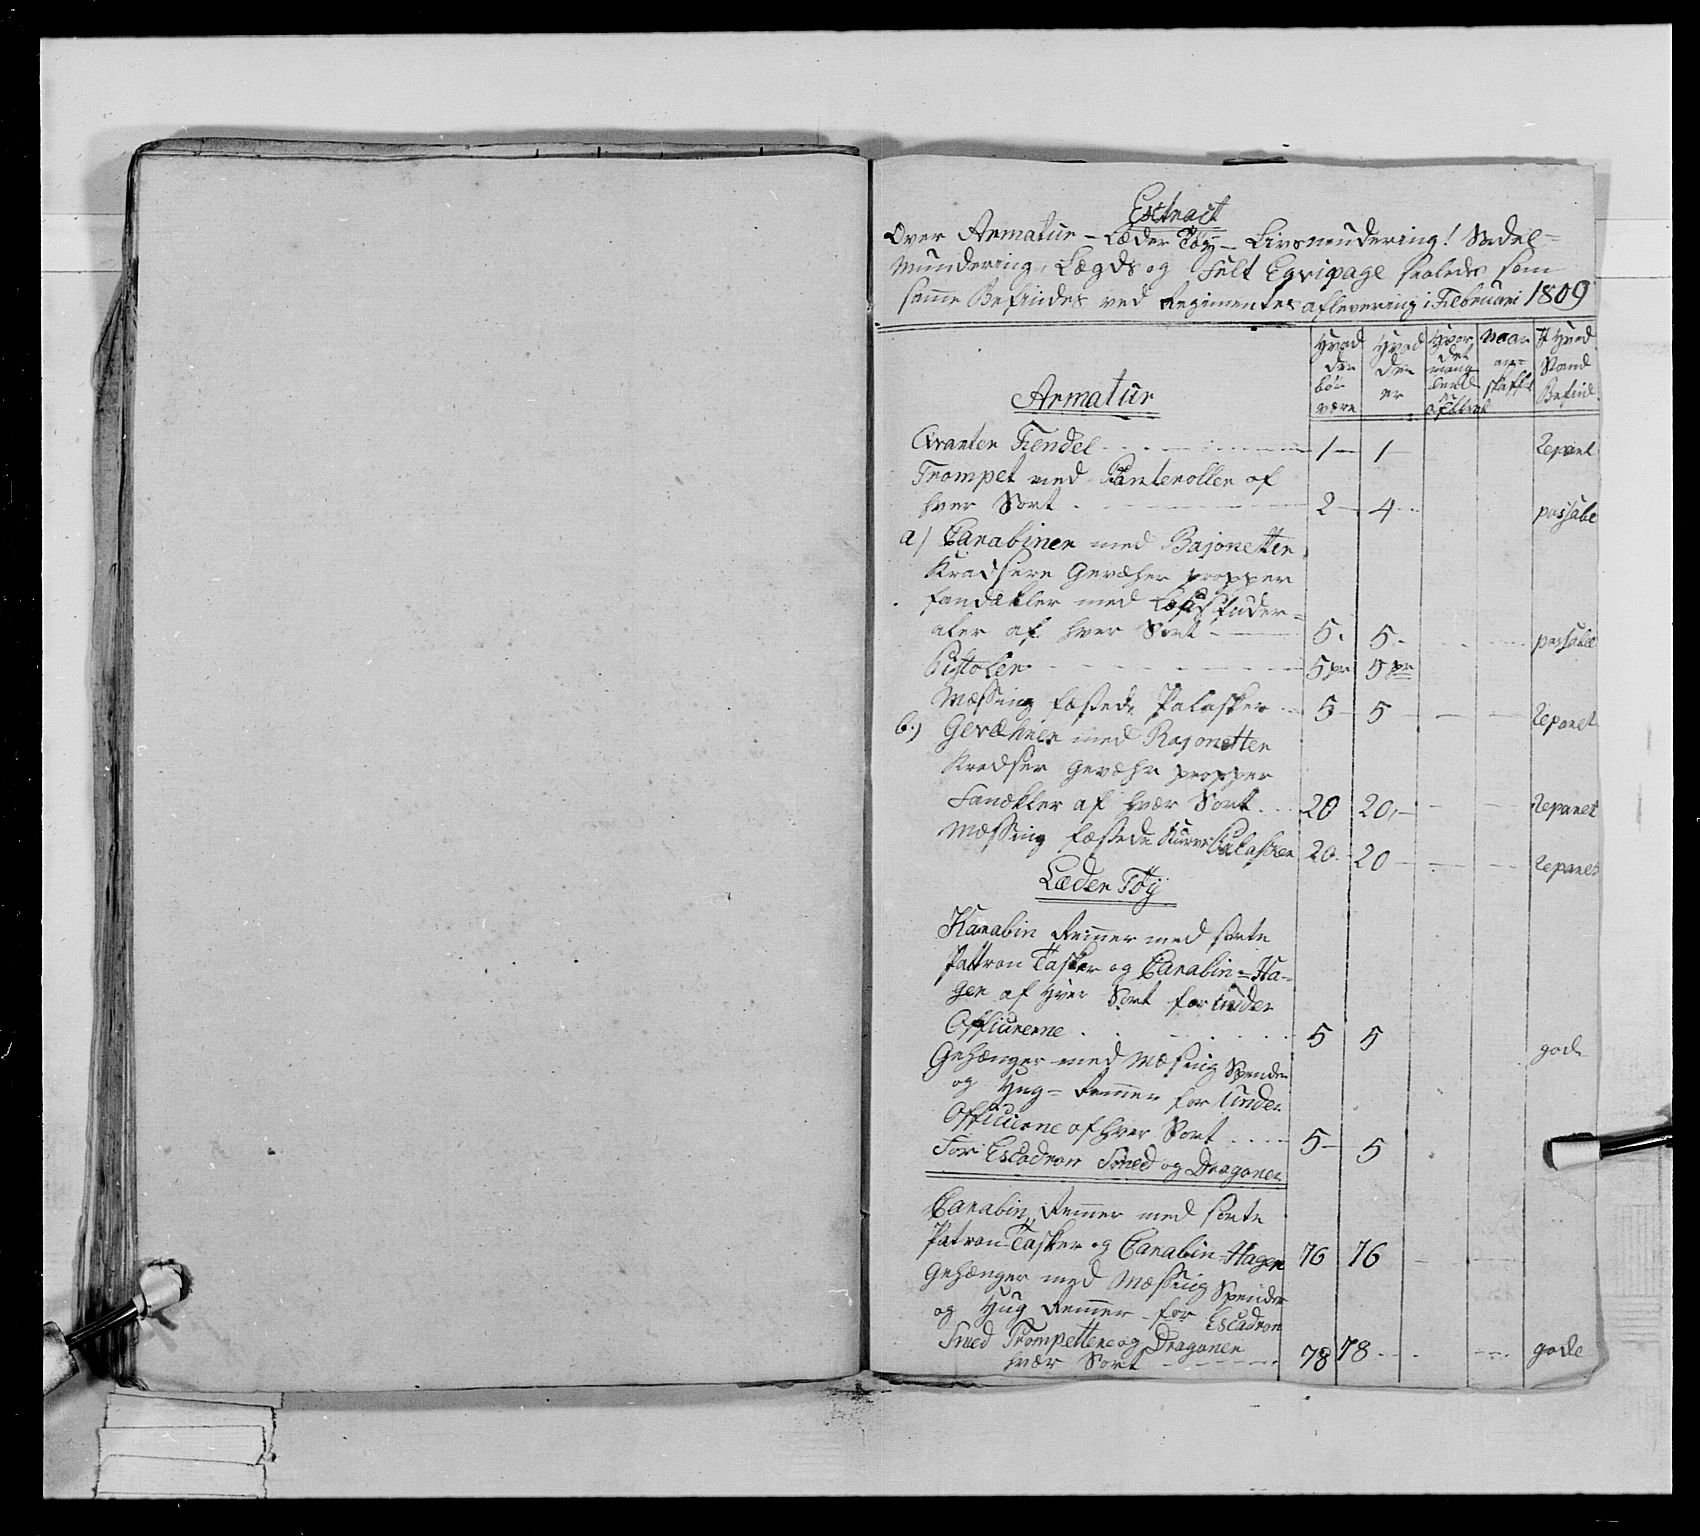 Extract
Over Armatur - Læder Tøy - Livmundering! Sadel=
Mundering, Lægds og Felt Eqvipage saaledes som
samme Befindes ved Regimentes aflevering i Februari 1809
Hvad der bør være
Hvad der er
Hvor det mang lende er
Naar an= skaffet
I Hvad Stand Befind.
Armatur
Fendel 1 1 reparet
Trompet med Banteroller af
hver Sort 2 4 passabe
a) Carabiner med Bajonetter
Kradsere Gevæhr propper
fandækler med Lohsfuder=
aler af hver Sort 5. 5. passable
Pistoler 5 pr 5 pr
Messing fæstede Palasker 5 5 reparet
b.) Gevæhrer med Bajonetter
Kradser Gevæhr propper
Fandækler af hvær Sort 20 20 reparet
Messing fæstede Kurve Palasker 20 20 reparet
Læder Tøy
Karabin Remmer med sorte
Patron Tasker og Carabin=Ha=
ger af Hver Sort for under
Officirerne 5 5 gode
Gehænger med Messing Spender
og Hug=Remmer for Under
Officirerne af hver Sort 5 5
For Escadron Smed og Dragoner
Carabin Remmer med sorte
Patron Tasker og Carabin=Hager 76 76
Gehænger med Messing Spender
og Hug Remmer for Escadron
Smed Trompettere og Dragoner
hvær Sort 78 78 gode